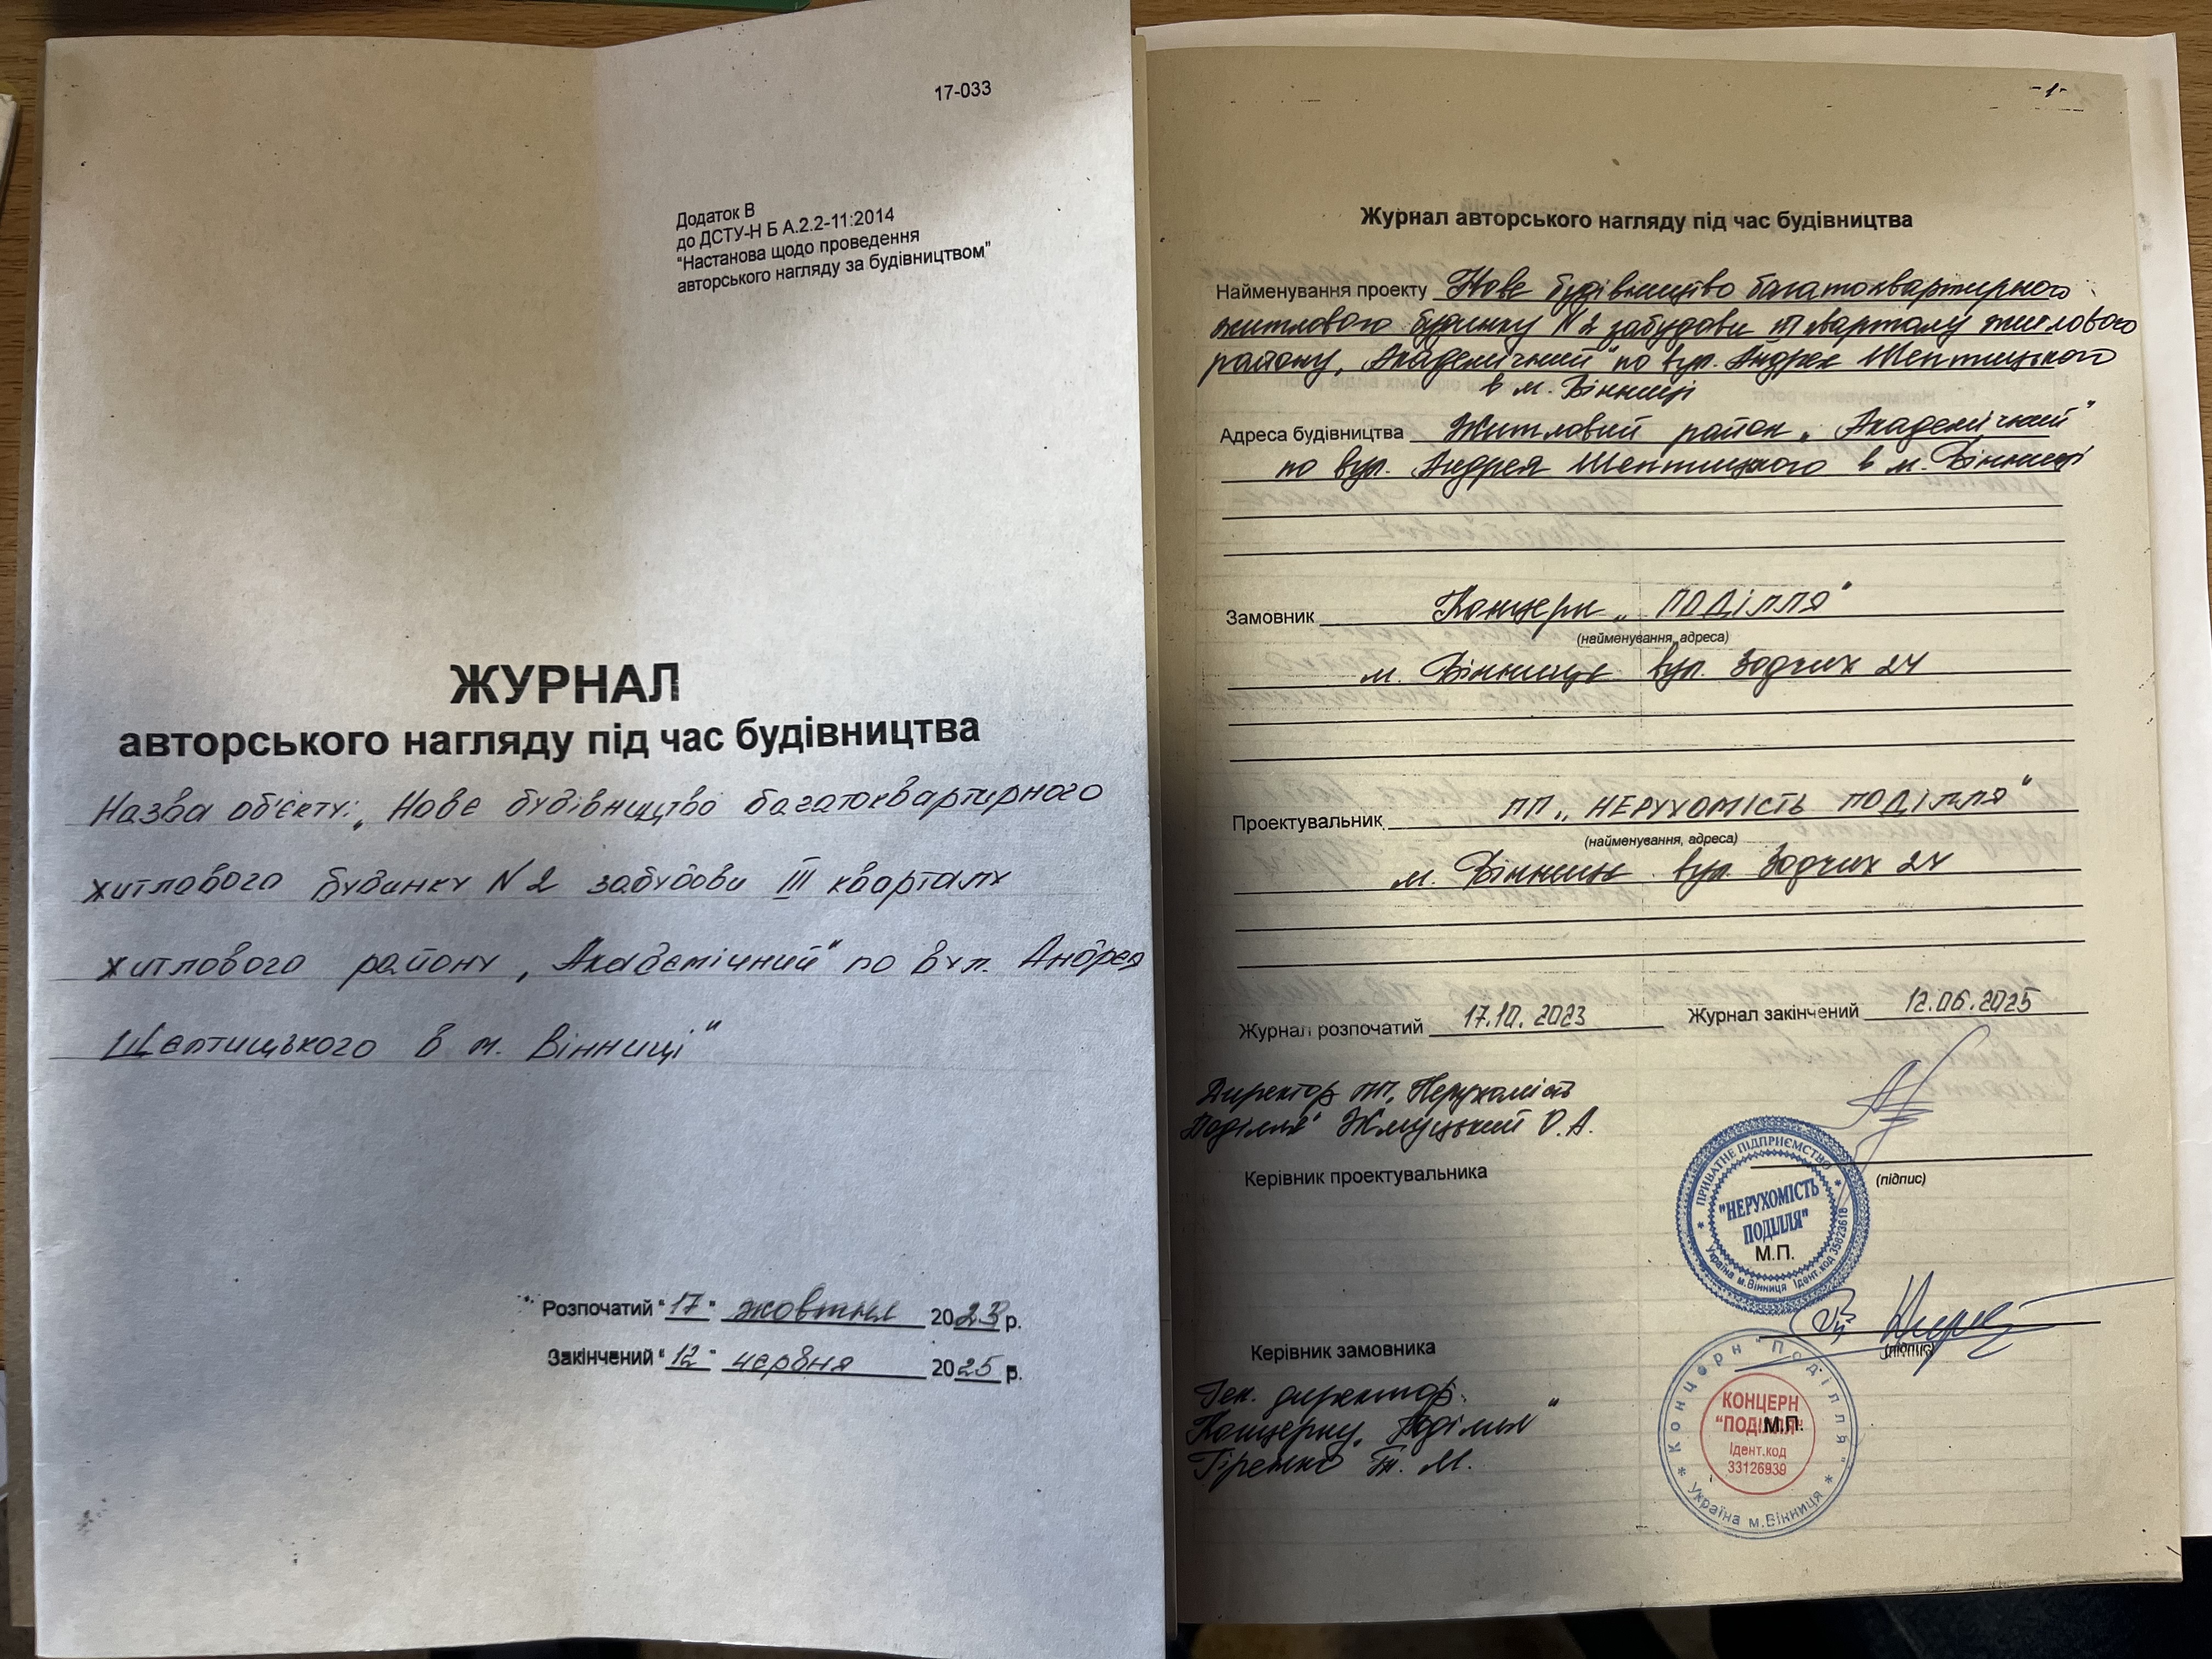 17-033
Додаток В
до ДСТУ-Н Б А.2.2-11:2014
"Настанова щодо проведення
авторського нагляду за будівництвом"
ЖУРНАЛ
авторського нагляду під час будівництва
Назва об'єкту: „Нове будівництво багатоквартирного
житлового будинку N2 забудови III кварталу
житлового району „Академічний" по вул. Андрея
Шептицького в м. Вінниці"
Розпочатий "17" жовтня 2023 р.
Закінчений "12" червня 2025 р.
-1-
Журнал авторського нагляду під час будівництва
Найменування проекту Нове будівництво багатоквартирного
житлового будинку N2 забудови III кварталу житлового
району „Академічний" по вул. Андрея Шептицького
в м. Вінниці
Адреса будівництва Житловий район „Академічний"
по вул. Андрея Шептицького в м. Вінниці
Замовник Концерн „ПОДІЛЛЯ"
(найменування, адреса)
м. Вінниця вул. Зодчих 24
Проектувальник ПП „НЕРУХОМІСТЬ ПОДІЛЛЯ"
(найменування, адреса)
м. Вінниця вул. Зодчих 24
Журнал розпочатий 17.10.2023 Журнал закінчений 12.06.2025
Директор ПП „Нерухомість
Поділля" Жмуцький О.А.
Керівник проектувальника
(підпис)
ПРИВАТНЕ ПІДПРИЄМСТВО
"НЕРУХОМІСТЬ
ПОДІЛЛЯ"
М.П.
Україна м.Вінниця Ідент.код 35823618
Керівник замовника
(підпис)
Ген. директор
Концерну „Поділля"
Гіренко Т. М.
Концерн "Поділля"
КОНЦЕРН
"ПОДІЛЛЯ"
М.П.
Ідент.код
33126939
Україна м.Вінниця